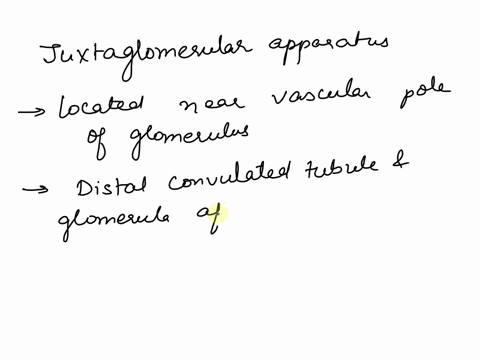 Juxtaglomerular apparatus
→ Located near vascular pole
of glomerulus
→ Distal convulated tubule &
glomerule af